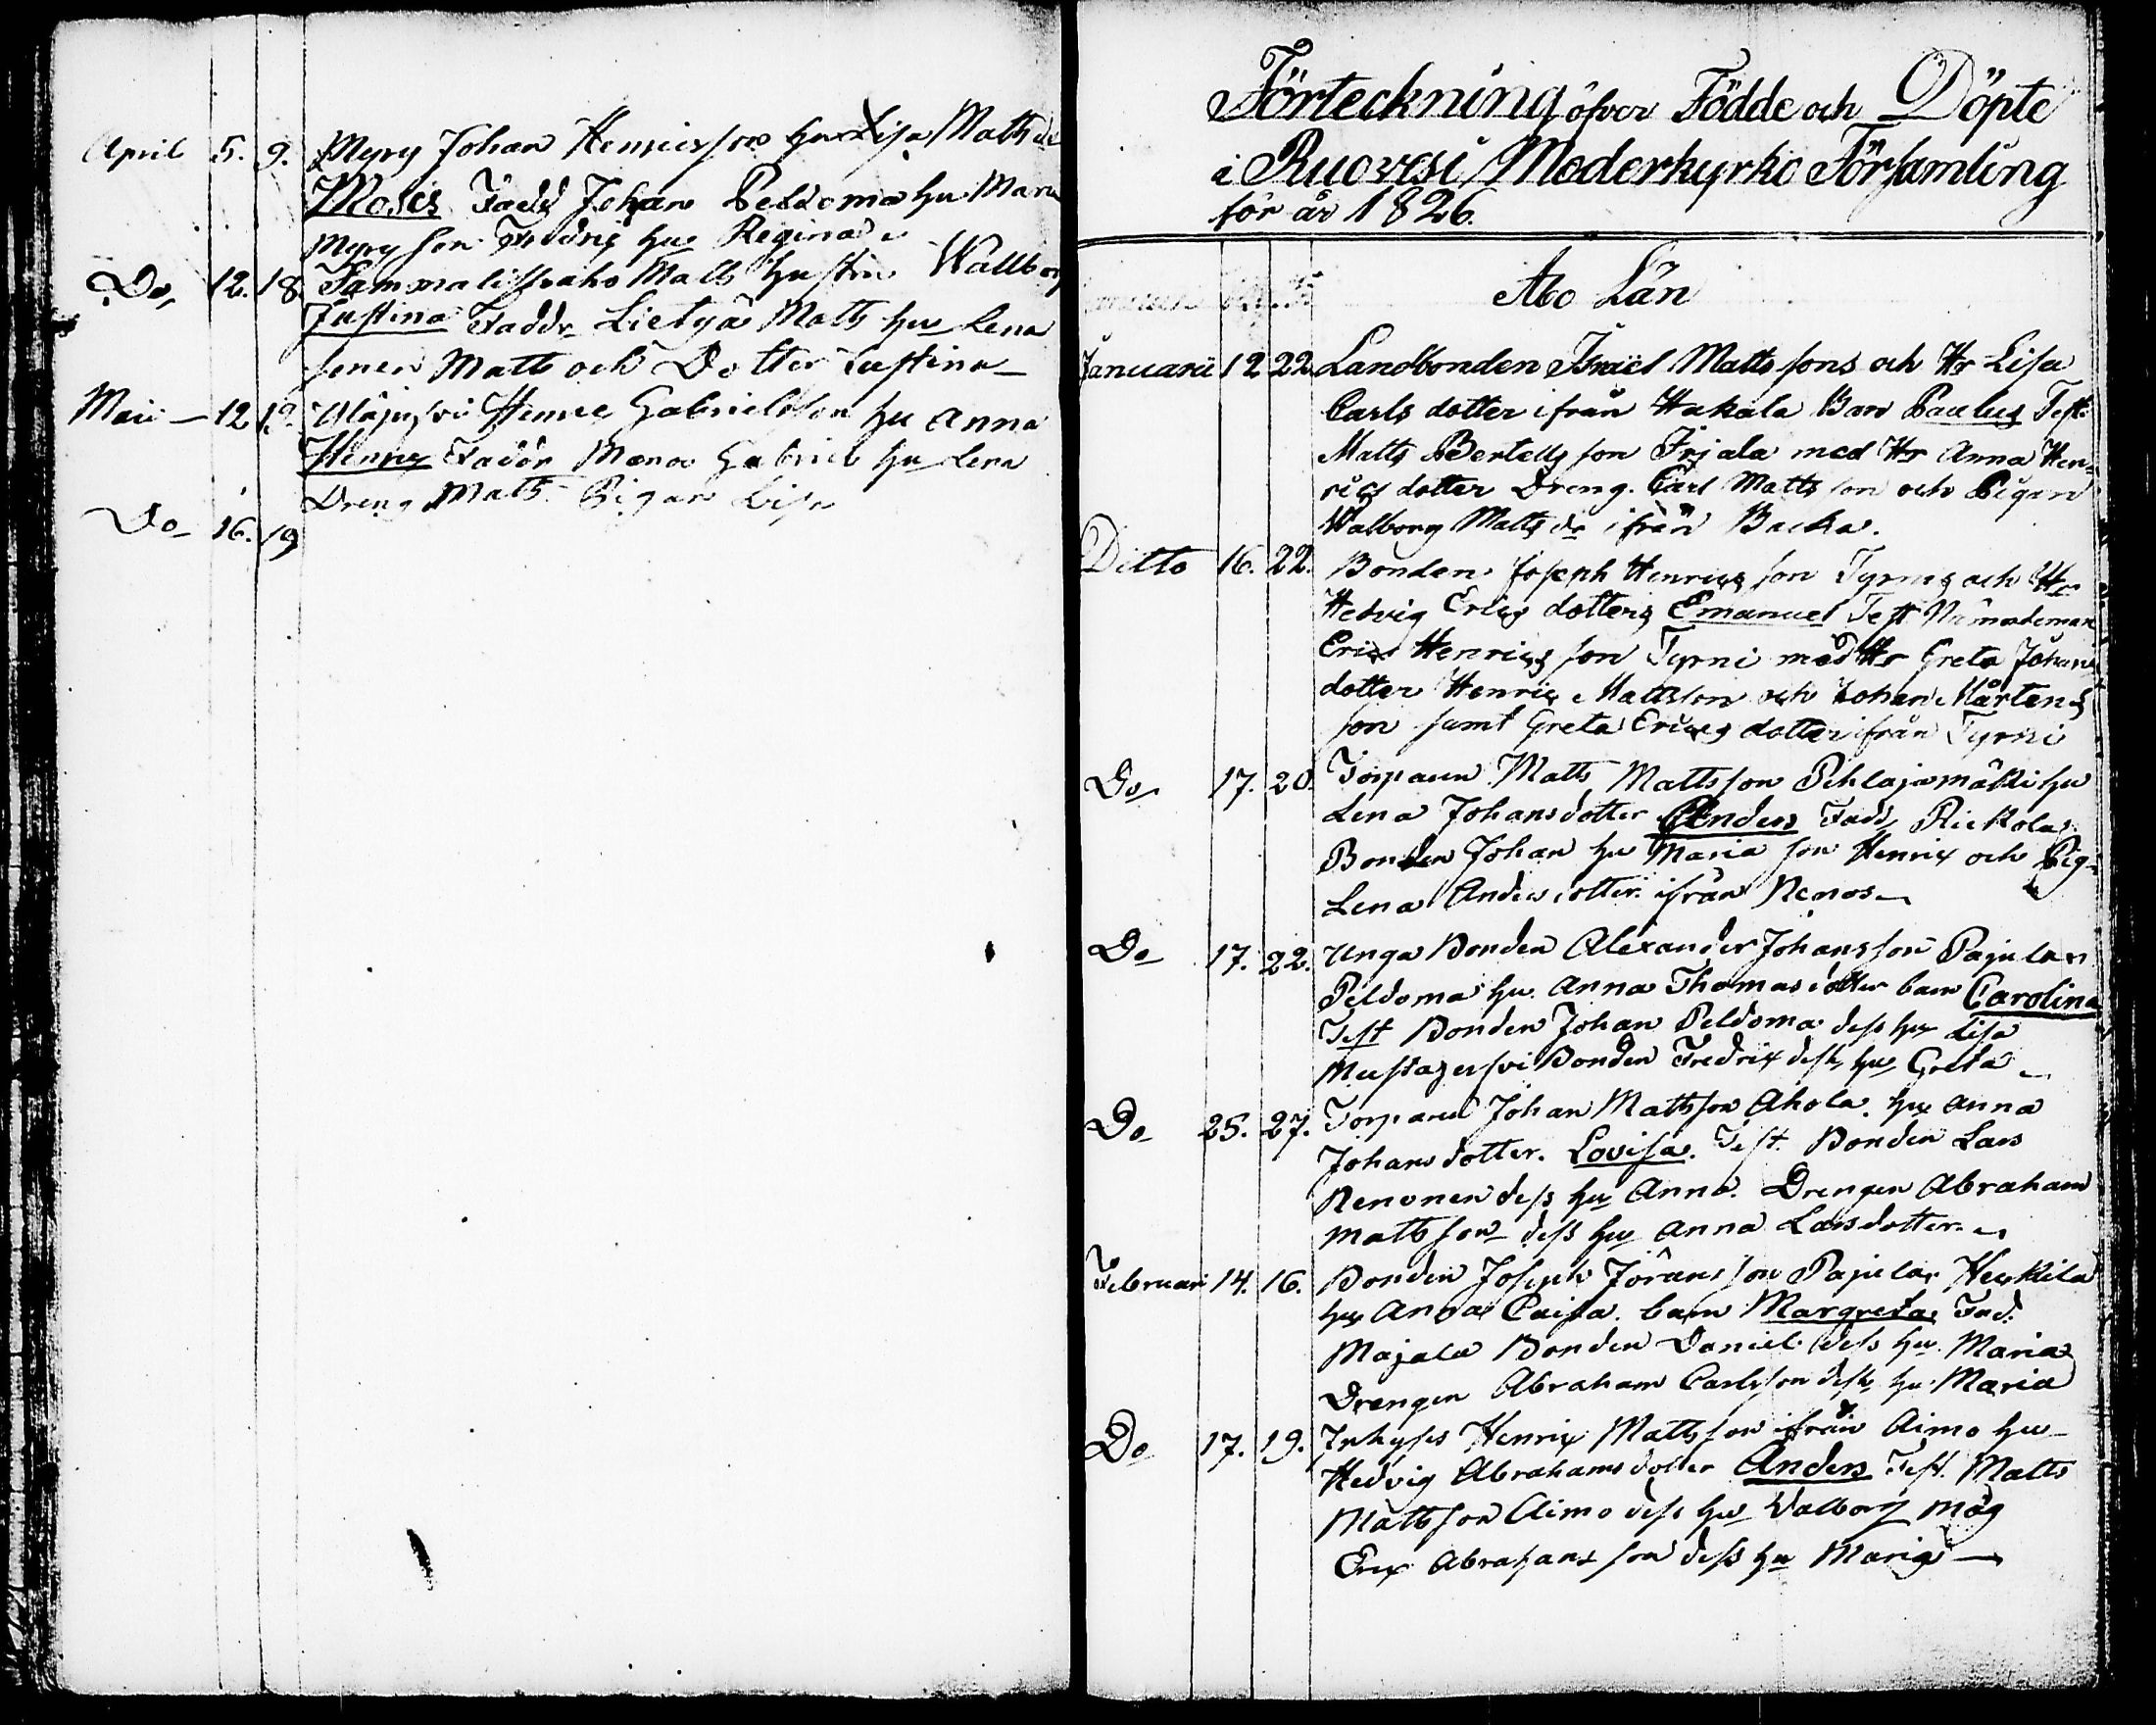 April 5. 9. Myry Johan Henricsson hu Lisa Matts dr
Moses Fadd Johan Peldoma hu Maria
Myry son Fredric hu Regina
Do 12. 18. Sammalisaho Matts hustru Wallborg
Justina Faddr Lietya Matts hu Lena
sonen Matts och Dotter Justina
Maii 12 13. Henric Gabrielsson hu Anna
Henric Faddr Gabriel hu Lena
Dreng Matts Pigan Lisa
Do 16. 19
Förteckning öfver Födde och Döpte
i Ruovesi Moderkyrko Församling
för år 1826.
Abo Län
Januarii 12 22 Landbonden Israel Matts sons och Hr Lisa
Carls dotter ifrån Hakala Barn Paulus Test.
Matts Bertells son Irjala med Hr Anna Hen=
rics dotter Dreng. Carl Matts son och Pigan
Walborg Matts dr ifrån Backa.
Ditto 16. 22. Bonden Joseph Henrics son Tyrnis och Hr
Hedvig Erics dotters Emanuel Test Nämndeman
Eric Henrics son Tyrni med Hr Greta Johans
dotter Henric Mattsson och Johan Mårtens
son samt Greta Erics dotter ifrån Tyrni
Do 17. 20. Torparen Matts Mattsson Pihlajamäki hu
Lena Johansdotter Anders Fadd Riekola
Bonden Johan hu Maria son Henric och Pig=
Lena Andersdotter ifrån Nenos
Do 17. 22. Unga Bonden Alexander Johansson Pajulan
Peldoma hu Anna Thomasdotter barn Carolina
Test Bonden Johan Peldoma dess hu Lisa
Mustajersvi Bonden Fredric dess hu Greta
Do 25. 27. Torparen Johan Mattsson Ahola. hu Anna
Johansdotter. Lovisa. Test. Bonden Lars
Nenonen dess hu Anna. Drengen Abraham
Mattsson dess hu Anna Larsdotter.
Februari 14. 16. Bonden Joseph Jöransson Pajula Heikkilä
hu Anna Caisa. barn Margreta Fad.
Majala Bonden Daniel dess hu Maria
Drengen Abraham Carlsson dess hu Maria
Do 17. 19. Inhyses Henric Mattsson ifrån Aimo hu
Hedvig Abrahamsdotter Anders Test. Matts
Mattsson Aimo dess hu Walborg måg
Eric Abrahams son dess hu Maria